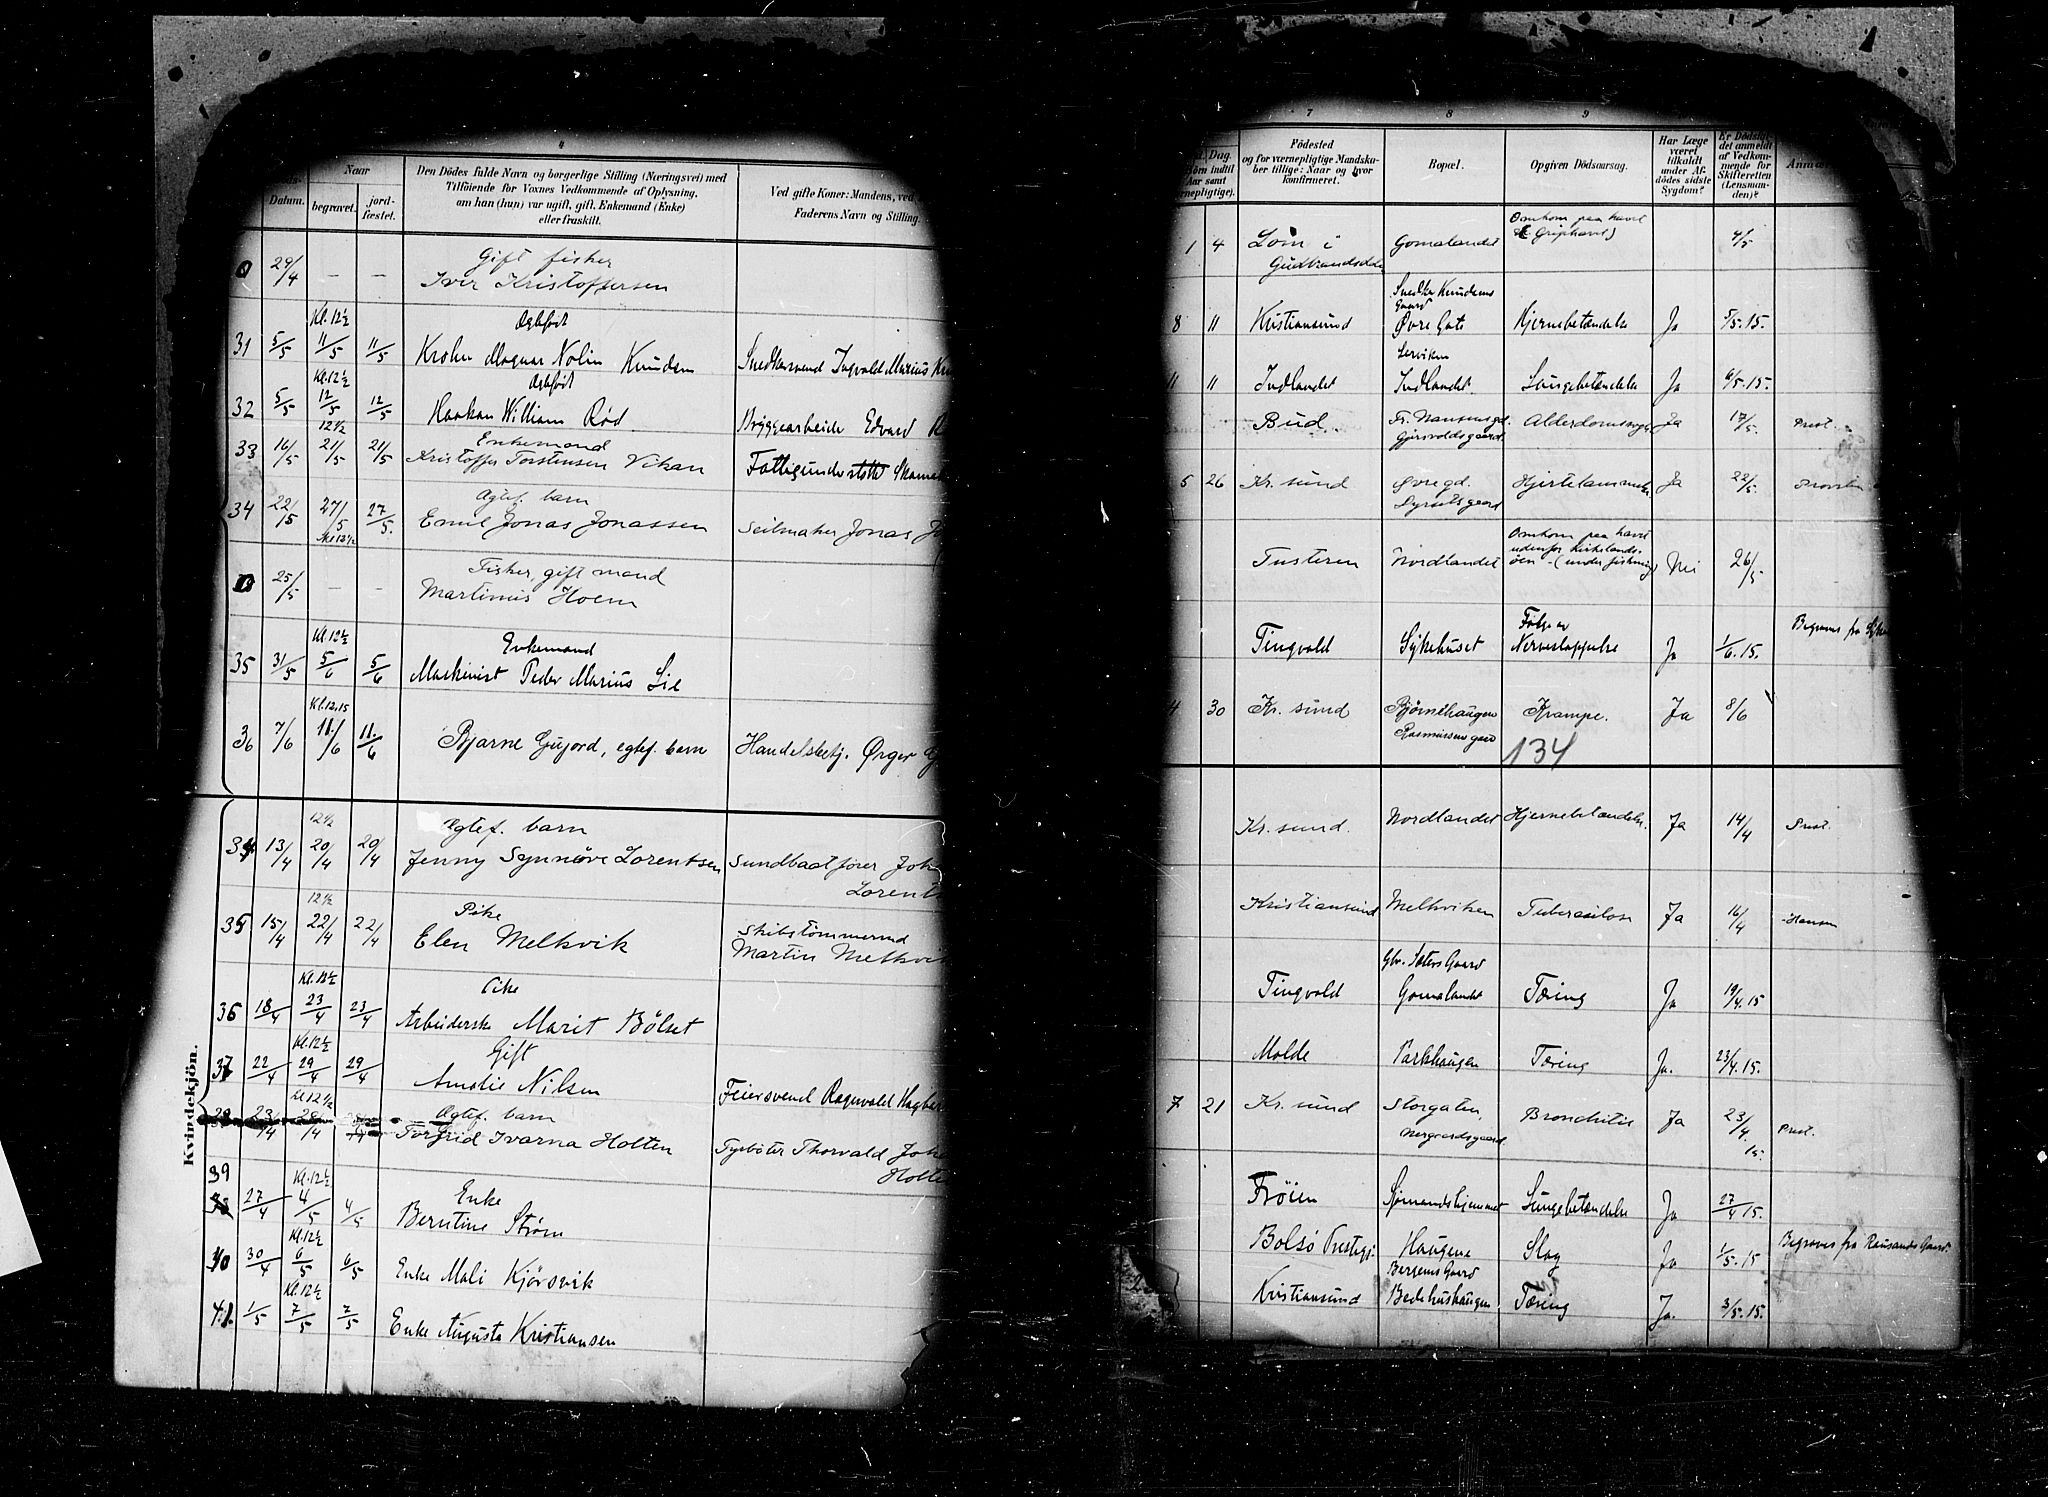 4
Naar
Datum.
begravet.
jord-
fæstet.
Den Dödes fulde Navn og borgerlige Stilling (Næringsvei) med
Tilföiende for Voxnes Vedkommende af Oplysning,
om han (hun) var ugift, gift, Enkemand (Enke)
eller fraskilt.
Ved gifte Koner: Mandens, ved
Faderens Navn og Stilling.
29/4 — — Gift fisker
Iver Kristoffersen
Kl. 12½
31 5/5 11/5 11/5 Ægtefödt
Krohn Magnar Nolin Knudsen Snedkersvend Ingvald Marius
Kl. 12½
32 5/5 12/5 12/5 Ægtefödt
Haakon William Rød Bryggearbeide Edvard
12½
33 16/5 21/5 21/5 Enkemand
Kristoffer Torstensen Vikan Fattigunderstøttet
34 22/5 27/5 27/5. Ægtef. barn
Emil Jonas Jonassen Seilmaker Jonas
Kl 12½
25/5 — — Fisker, gift mand
Martinus Hoem
Kl. 12½
35 31/5 5/6 5/6 Enkemand
Maskinist Peder Marius Lie
Kl. 12,15
36 7/6 11/6 11/6 Bjarne Gujord, egtef. barn Handelsbetj. Ørger
Kvindekjön.
12½
34 13/4 20/4 20/4 Ægtef. barn
Jenny Synnøve Lorentsen Sundbaatfører
12½
35 15/4 22/4 22/4 Pike
Elen Melkvik Skibstømmermd
Martin Melkvik
Kl. 12½
36 18/4 23/4 23/4 Pike
Arbeiderske Marit Bölset
Kl. 12½
37 22/4 29/4 29/4 Gift
Amalie Nilsen Feiersvend Ragnvald
kl 12½
23/4 28/4 Ægtef. barn
Torfrid Ivarna Holten Thorvald
39
Kl. 12½
27/4 4/5 4/5 Enke
Berntine Strøm
Kl. 12½
40 30/4 6/5 6/5 Enke Mali Kjörsvik
Kl. 12½
41. 1/5 7/5 7/5 Enke Augusta Kristiansen
7
8
9
Dag.
Födested
og for værnepligtige Mandska-
ber tillige: Naar og hvor
konfirmeret.
Bopæl.
Opgiven Dödsaarsag.
Har Læge
været
tilkaldt
under Af-
dödes sidste
Sygdom?
Er Dödsfal-
det anmeldt
af Vedkom-
mende for
Skifteretten
(Lensman-
den)?
1 4 Lom i
Gudbrandsdalen Gomalandet Omkom paa havet
Griphavet) 4/5
8 11 Kristiansund Snedker Knudsens
Gaard
Øvre Gate Hjernebetændelse Ja 5/5.15.
11 11 Indlandet Indlandet. Lungebetændelse Ja 6/5.15.
Bud. Fr. Nansensgd. Alderdomssvagh. Ja 17/5. Prest.
5 26 Kr. sund Øvregd. Hjertelammelse Ja 22/5.
Tusteren Nordlandet Omkom paa havet
udenfor Kirkelands-
öen - (under fiskning) Nei 26/5
Tingvold Sykehuset Følge av
Nerveslappelse Ja 1/6.15. Begraves fra
4 30 Kr. sund Bjørnehaugen
Rasmussen gaard Krampe. Ja 8/6
134
Kr. sund. Nordlandet Hjernebetændelse. Ja 14/4 Prest.
Kristiansund Melkviken Tuberculose Ja 16/4 Hansen
Tingvold Gomalandet Tæring Ja 19/4.15
Molde Parkhaugen Tæring Ja. 23/4.15.
7 21 Kr. sund Storgaten,
Nergaardsgaard. Bronchitis Ja 23/4 15. Prest.
Frøien Sjømandshjemmet Lungebetændelse Ja 27/4 15.
Bolsö Prestegj. Haugene Slag Ja 1/5.15 Begraves fra Rausands Gaard.
Kristiansund Bergems Gaard
Bedehushaugen Tæring Ja. 3/5.15.